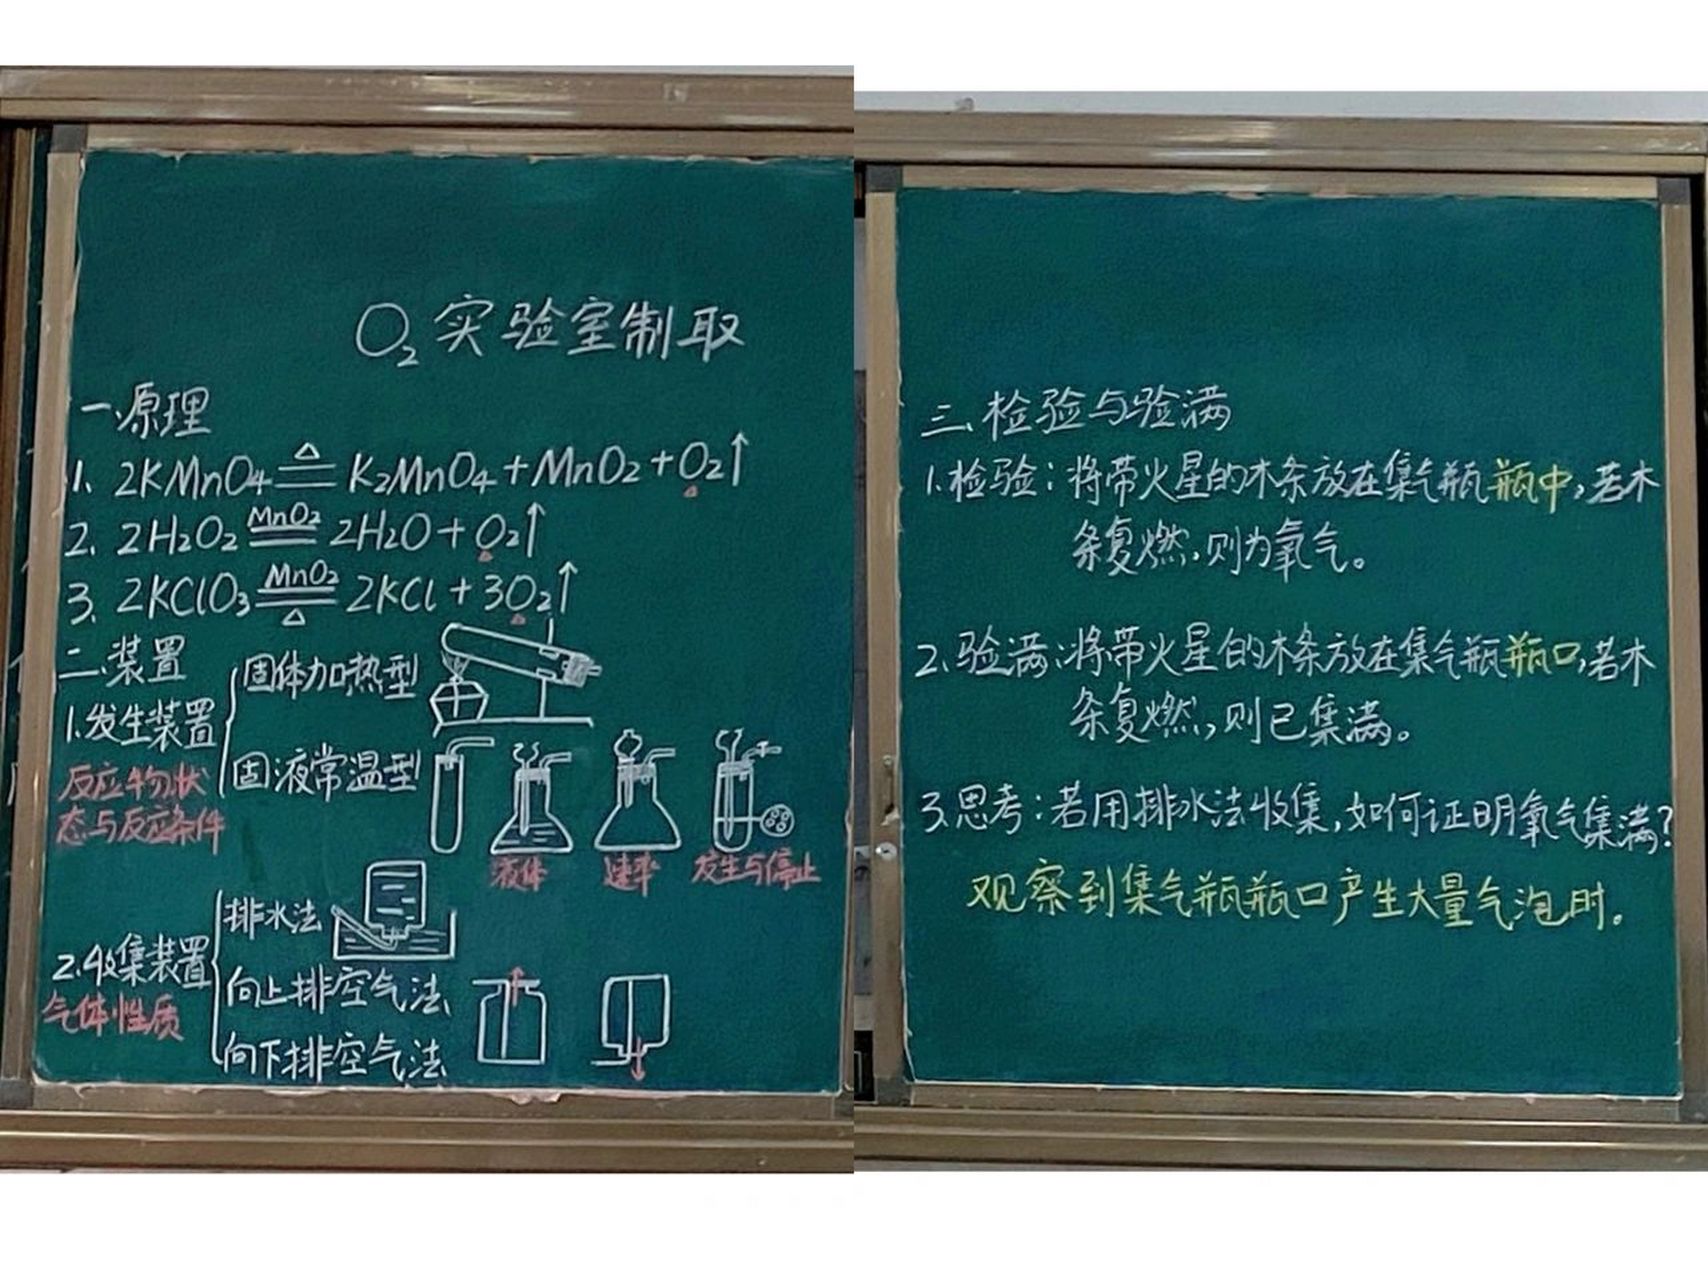 O₂ 实验室制取
一、原理
1、2KMnO₄ ≜ K₂MnO₄+MnO₂+O₂↑
2、2H₂O₂ MnO₂ ═ 2H₂O+O₂↑
3、2KClO₃ MnO₂ ═ △ 2KCl+3O₂↑
二、装置
1.发生装置
反应物状
态与反应条件
固体加热型
固液常温型
液体 速率 发生与停止
2.收集装置
气体性质
排水法
向上排空气法
向下排空气法
三、检验与验满
1.检验:将带火星的木条放在集气瓶瓶中,若木
条复燃,则为氧气。
2.验满:将带火星的木条放在集气瓶瓶口,若木
条复燃,则已集满。
3.思考:若用排水法收集,如何证明氧气集满?
观察到集气瓶瓶口产生大量气泡时。